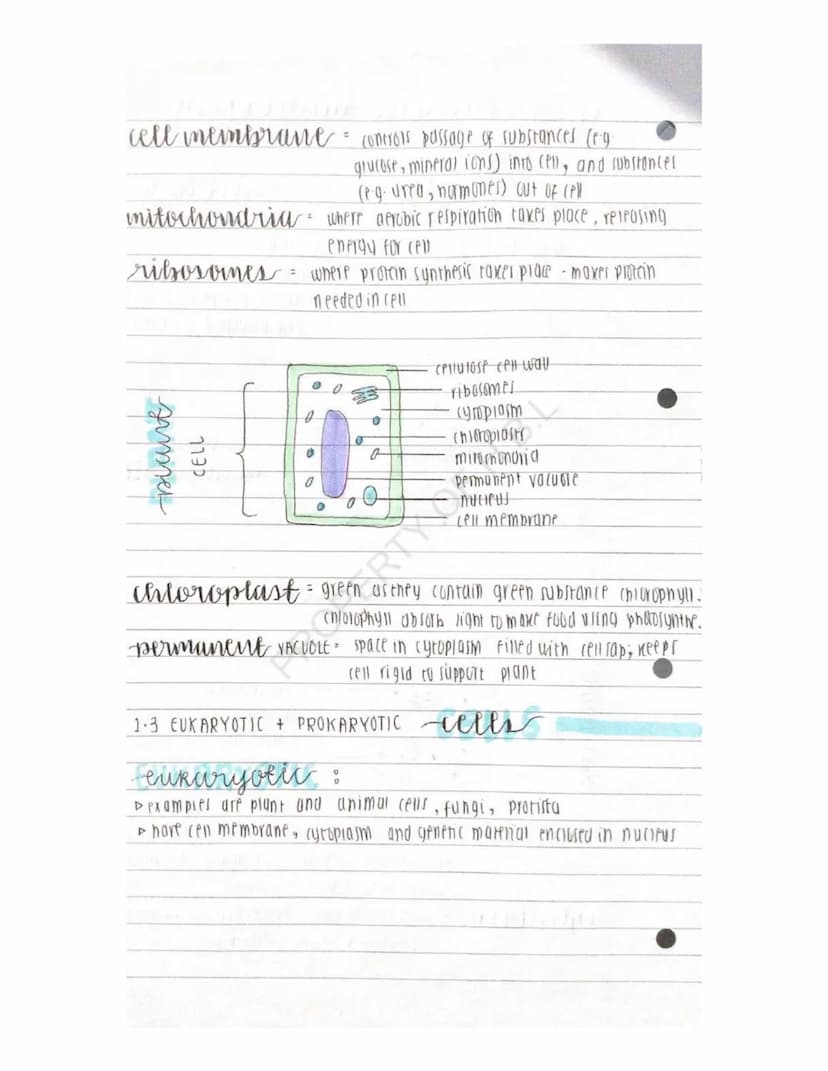 cell membrane = controls passage of substances (e.g.
glucose, mineral ions) into cell, and substances
(e.g. urea, hormones) out of cell
mitochondria = where aerobic respiration takes place, releasing
energy for cell
ribosomes = where protein synthesis takes place - makes protein
needed in cell
plant
CELL
cellulose cell wall
ribosomes
cytoplasm
chloroplasts
mitochondria
permanent vacuole
nucleus
cell membrane
chloroplast = green as they contain green substance chlorophyll.
chlorophyll absorb light to make food using photosynthe.
permanent VACUOLE = space in cytoplasm filled with cell sap; keeps
cell rigid to support plant
1.3 EUKARYOTIC + PROKARYOTIC cells
CELLS
eukaryotic :
EUKARYOTIC
▷ examples are plant and animal cells, fungi, protista
▷ have cell membrane, cytoplasm and genetic material enclosed in nucleus